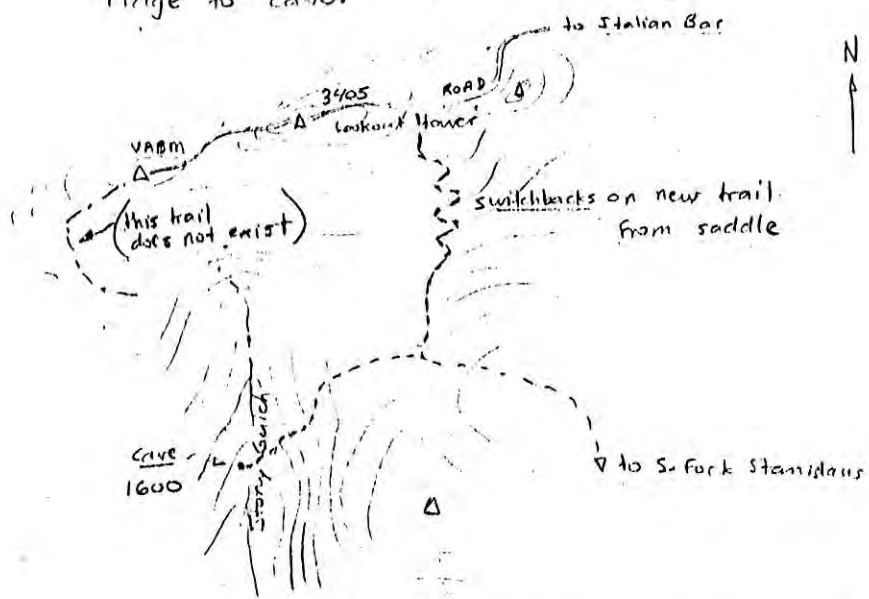 Ridge to cave.
to Italian Bar
N
ROAD
3405
Lookout tower
VABM
(this trail
does not exist)
switchbacks on new trail
from saddle
Cave
1600
Stony Gulch
to S. Fork Stanislaus